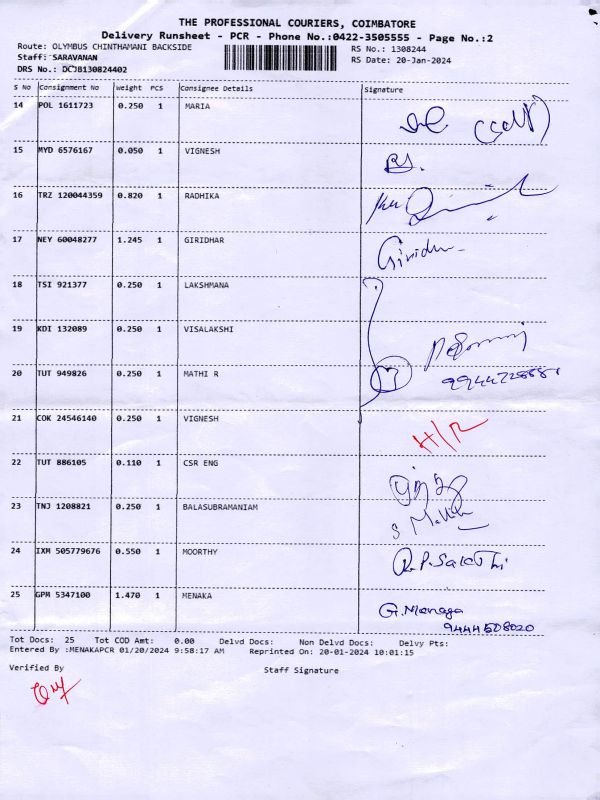 THE PROFESSIONAL COURIERS, COIMBATORE
Delivery Runsheet - PCR - Phone No.:0422-3505555 - Page No.:2
Route: OLYMBUS CHINTHAMANI BACKSIDE RS No.: 1308244
Staff: SARAVANAN RS Date: 20-Jan-2024
DRS No.: DCJB130824402
S No Consignment No Weight PCS Consignee Details Signature
14 POL 1611723 0.250 1 MARIA
15 MYD 6576167 0.050 1 VIGNESH
16 TRZ 120044359 0.820 1 RADHIKA
17 NEY 60048277 1.245 1 GIRIDHAR
18 TSI 921377 0.250 1 LAKSHMANA
19 KDI 132089 0.250 1 VISALAKSHI
20 TUT 949826 0.250 1 MATHI R
21 COK 24546140 0.250 1 VIGNESH H/R
22 TUT 886105 0.110 1 CSR ENG
23 TNJ 1208821 0.250 1 BALASUBRAMANIAM
24 IXM 505779676 0.550 1 MOORTHY R.P.Sakthi
25 GPM 5347100 1.470 1 MENAKA G.Menaga
9444508020
Tot Docs: 25 Tot COD Amt: 0.00 Delvd Docs: Non Delvd Docs: Delvy Pts:
Entered By :MENAKAPCR 01/20/2024 9:58:17 AM Reprinted On: 20-01-2024 10:01:15
Verified By Staff Signature